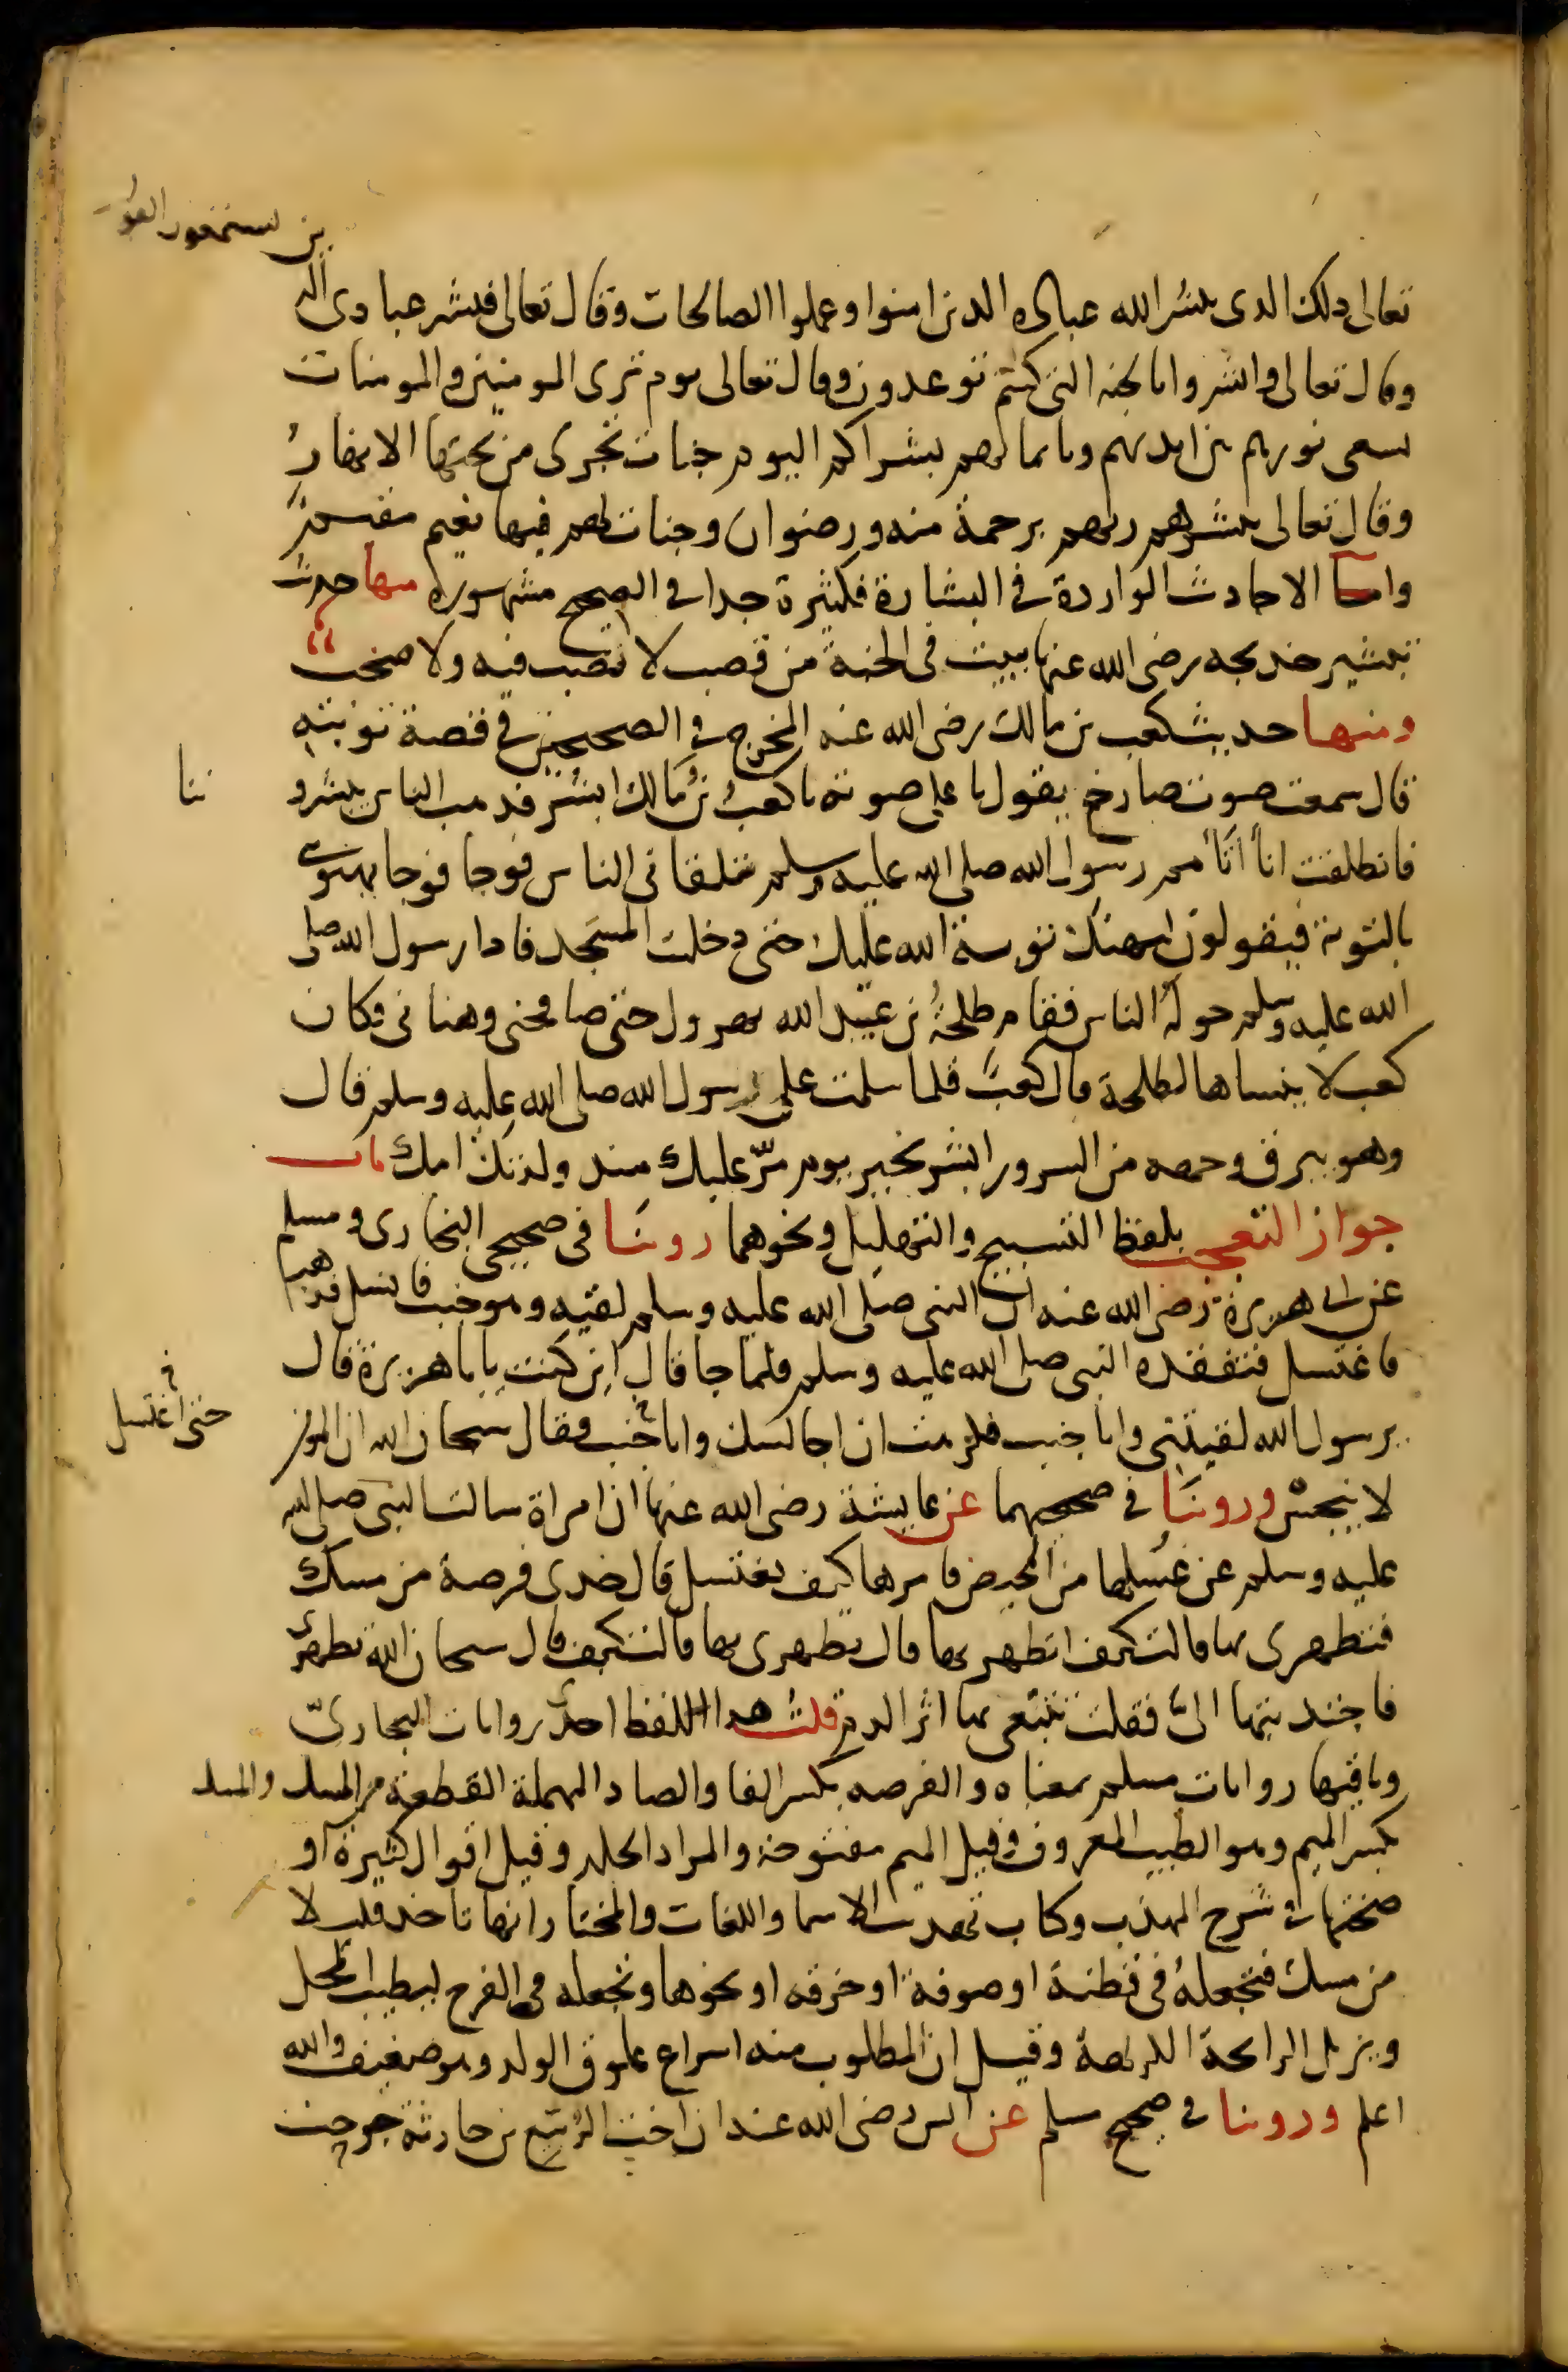 ين يستمعون القول
تعالى ذلك الذى يبشر الله عباده الذين امنوا وعملوا الصالحات وقال تعالى فبشر عبادى الذ
وقال تعالى وابشروا بالجنه التى كنتم توعدون وقال تعالى يوم ترى المومنين والمومنات
يسعى نورهم بين ايديهم وبايمانهم بشراكم اليوم جنات تجرى من تحتها الانهار
وقال تعالى يبشرهم ربهم برحمة منه ورضوان وجنات لهم فيها نعيم مقيم
واما الاحاديث الواردة فى البشارة فكثيرة جدا فى الصحيح مشهورة منها حديث
تبشير خديجه رضى الله عنها ببيت فى الجنة من قصب لا نصب فيه ولا صخب
ومنها حديث كعب بن مالك رضى الله عنه المخرج فى الصحيحين فى قصة توبته
قال سمعت صوت صارخ يقول باعلى صوته يا كعب بن مالك ابشر فذهب الناس يبشرو
ننا
فانطلقت انا اتامم رسول الله صلى الله عليه وسلم يتلقانى الناس فوجا فوجا يهنونى
بالتوبة فيقولون لتهنك توبة الله عليك حتى دخلت المسجد فاذا رسول الله صلى
الله عليه وسلم حوله الناس فقام طلحة بن عبيد الله يهرول حتى صافحنى وهنانى فكان
كعب لا ينساها لطلحة قال كعب فلما سلمت على رسول الله صلى الله عليه وسلم قال
وهو يبرق وجهه من السرور ابشر بخير يوم مر عليك منذ ولدتك امك باب
جواز التعجب بلفظ التسبيح والتهليل ونحوهما روينا فى صحيحى البخارى ومسلم
عن ابى هريرة رضى الله عنه ان النبى صلى الله عليه وسلم لقيه وهو جنب فانسل فذهب
فاغتسل فتفقده النبى صلى الله عليه وسلم فلما جا قال اين كنت يابا هريرة قال
يرسول الله لقيتنى وانا جنب فكرهت ان اجالسك وانا جنب فقال سبحان الله ان المومن
حتى اغتسل
لا ينجس وروينا فى صحيحيهما عن عايشة رضى الله عنها ان امراة سالت النبى صلى الله
عليه وسلم عن غسلها من الحيض فامرها كيف تغتسل قال خذى فرصة من مسك
فتطهرى بها قالت كيف اتطهر بها قال تطهرى بها قالت كيف قال سبحان الله تطهرى
فاجتذبتها الى فقلت تتبعى بها اثر الدم قلت هذا اللفظ احدى روايات البخارى
وباقيها روايات مسلم بمعناه والفرصه بكسر الفا والصاد المهملة القطعة من المسك والمسك
بكسر الميم وهو الطيب المعروف وقيل الميم مفتوحة والمراد الجلد وقيل اقوال كثيرة او
ضحتها فى شرح المهذب وكتاب تهذيب الاسما واللغات والمختار انها تاخذ قليلا
من مسك فتجعله فى قطنة او صوفة او خرقه او نحوها وتجعله فى الفرج ليطيب المحل
ويزيل الرايحة الكريهة وقيل ان المطلوب منه اسراع علوق الولد وهو ضعيف والله
اعلم وروينا فى صحيح مسلم عن انس رضى الله عنه ان اخت الربيع بن حارثة جرحت